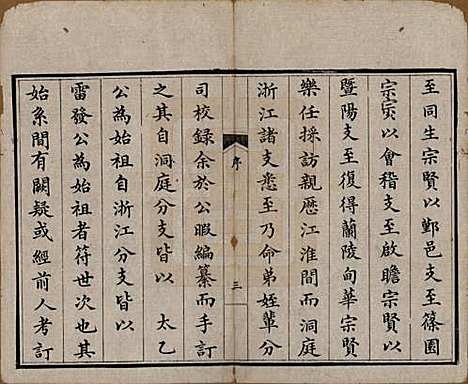 至同生宗賢以鄞邑支至篠園
宗寅以會稽支至啟瞻宗賢以
暨陽支至復得蘭陵甸華宗賢
樂任採訪親歷江淮間而洞庭
浙江諸支悉至乃命弟姪輩分
序
三
司校録余於公暇編纂而手訂
之其自洞庭分支皆以 太乙
公為始祖自浙江分支皆以
雷發公為始祖者符世次也其
始系間有闕疑或經前人考訂